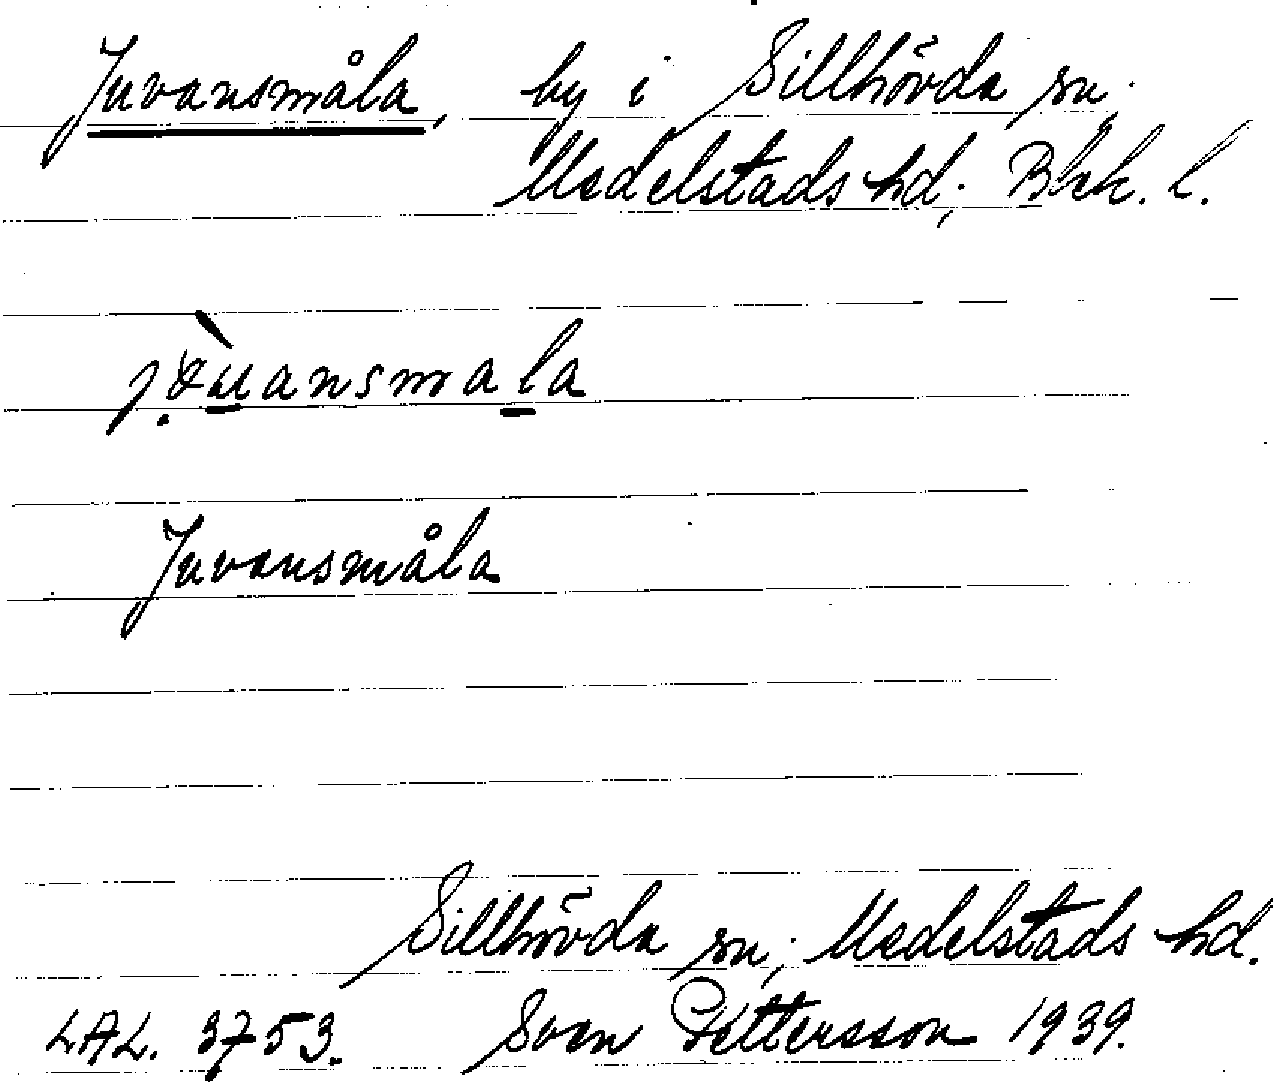 Juvansmåla, by i Sillhövda sn.
Medelstads hd; Blek. l.
Juvansmåla
Sillhövda sn; Medelstads hd.
LAL. 3753. Sven Pettersson 1939.